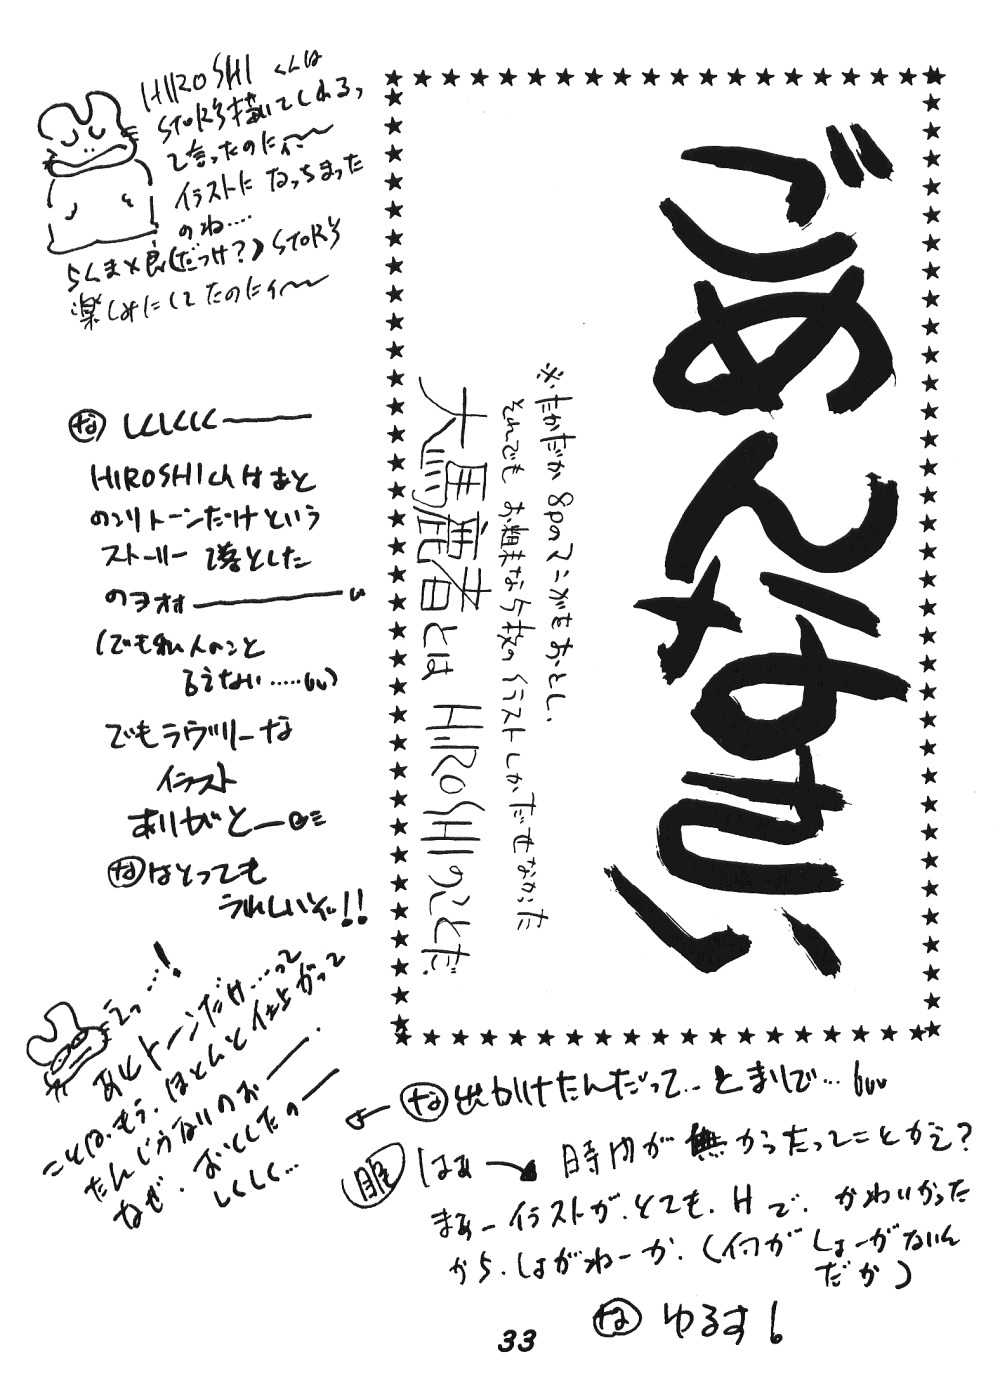 HIROSHIくんは
STORY描いてくれる、
て言ったのにィ〜
イラストに なっちまった
のね……
らくまメ良(だっけ?)STORY
楽しみにしてたのにィ〜
ごめんなさい
※.たかだか8pのマンガをおとし、
それでも お粗末な5枚のイラストしかだせなかった
大馬鹿者とは HIROSHIのことだ.
な しくしくしく――
HIROSHIくんはあと
のこりトーンだけという
ストーリー で落とした
のヨオオ――
(でも私 人のこと
言えない……)
でもラヴリーな
イラスト
ありがとー
なはとっても
うれしいぞ!!
えっ…!
あとトーンだけ…って
ことは、もう、ほとんど仕上がって
たんじゃないのぉ――.
なぜ、おとしたの―
しくしく…
な 出かけたんだって…とまりで…
はぁー 時間が無かったってことかえ?
まぁーイラストが、とても、Hで、かわいかった
から、しょがねーか.(何がしょーがないん
だか)
な ゆるす!
33